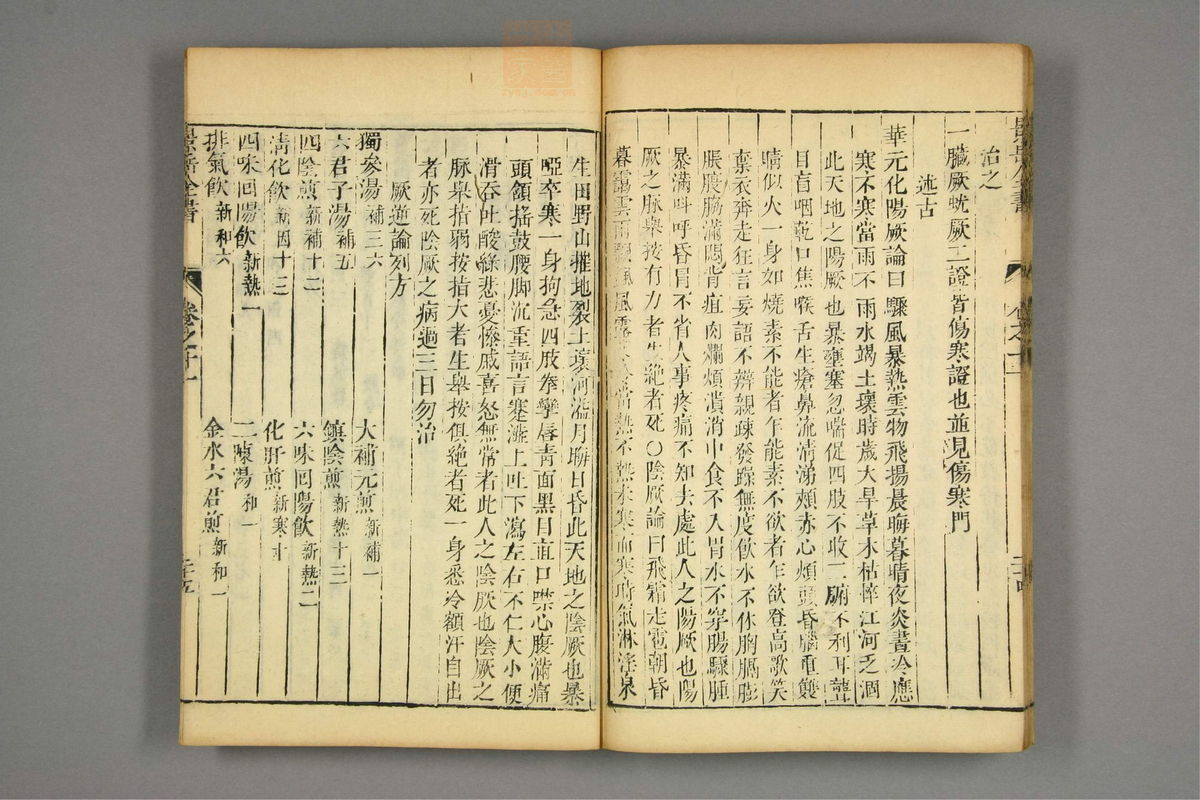 治之
一臟厥蚘厥二證皆傷寒證也並見傷寒門
述古
華元化陽厥論曰驟風暴熱雲物飛揚晨晦暮晴夜炎晝冷應
寒不寒當雨不雨水竭土壞時歲大旱草木枯悴江河乏涸
此天地之陽厥也暴壅塞忽喘促四肢不收二腑不利耳聾
目盲咽乾口焦喉舌生瘡鼻流清涕頰赤心煩頭昏腦重雙
睛似火一身如燒素不能者乍能素不欲者乍欲登高歌笑
棄衣奔走狂言妄語不辨親疎發躁無度飲水不休胸膈膨
脹腹脇滿悶背疽肉爛煩潰消中食不入胃水不穿腸驟腫
暴滿呌呼昏冒不省人事疼痛不知去處此人之陽厥也陽
厥之脉舉按有力者生絕者死○陰厥論曰飛霜走雹朝昏
暮靄雲雨飄風風露寒冷當熱不熱未寒而寒時氣淋淫泉
生田野山摧地裂土壞河溢月晦日昏此天地之陰厥也暴
啞卒寒一身拘急四肢拳攣唇青面黑目直口噤心腹滿痛
頭頷搖鼓腰脚沉重語言蹇澁上吐下瀉左右不仁大小便
滑吞吐酸綠悲憂慘戚喜怒無常者此人之陰厥也陰厥之
脉舉指弱按指大者生舉按俱絕者死一身悉冷額汗自出
者亦死陰厥之病過三日勿治
厥逆論列方
獨參湯補三六 大補元煎新補一
六君子湯補五 鎮陰煎新熱十三
四陰煎新補十二 六味回陽飲新熱二
清化飲新因十三 化肝煎新寒十
四味回陽飲新熱一 二陳湯和一
排氣飲新和六 金水六君煎新和一
景岳全書
卷之十一
二十四
景岳全書
卷之十一
二十五